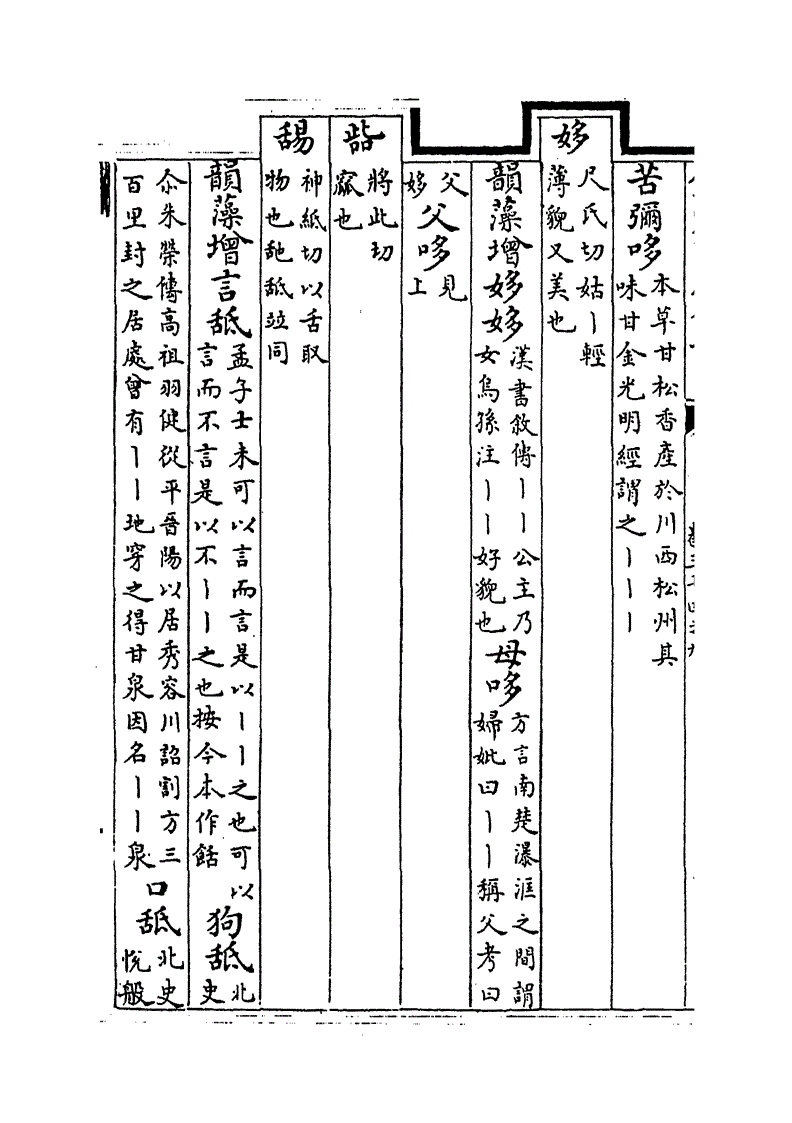 苦彌哆
本草甘松香產於川西松州其
味甘金光明經謂之丨丨丨
姼
尺氏切姑丨輕
薄貌又美也
韻藻增姼姼
漢書敘傳丨丨公主乃
女烏孫注丨丨好貌也
母哆
方言南楚瀑洭之間謂
婦妣曰丨丨稱父考曰
父
姼
父哆
見
上
啙
將此切
窳也
舓
神紙切以舌取
物也䑛舐竝同
韻藻增言舐
孟子士未可以言而言是以丨丨之也可以
言而不言是以不丨丨之也按今本作餂
狗舐
北
史
尒朱榮傳高祖羽健從平晉陽以居秀容川詔割方三
百里封之居處曾有丨丨地穿之得甘泉因名丨丨泉
口舐
北史
悅般